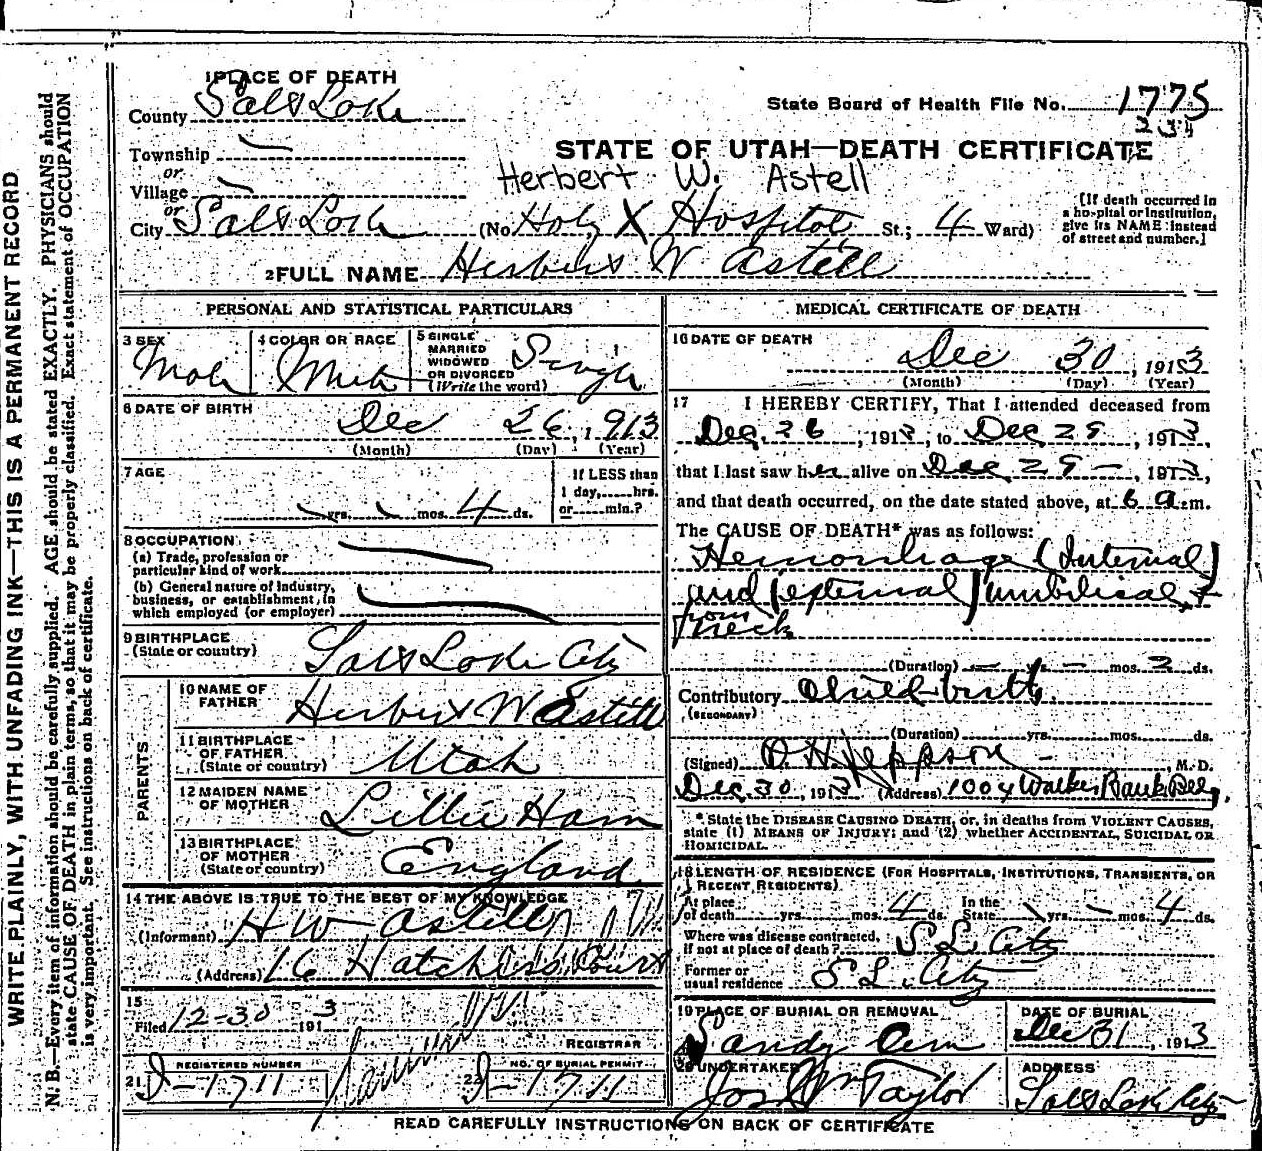 WRITE PLAINLY, WITH UNFADING INK—THIS IS A PERMANENT RECORD
N. B.—Every item of information should be carefully supplied. AGE should be stated EXACTLY. PHYSICIANS should
state CAUSE OF DEATH in plain terms, so that it may be properly classified. Exact statement of OCCUPATION
is very important. See instructions on back of certificate.
1 PLACE OF DEATH
County Salt Lake
State Board of Health File No. 1775
234
Township —
or
Village —
or
STATE OF UTAH—DEATH CERTIFICATE
Herbert W. Astell
City Salt Lake (No. Holy X Hospital St.; 4 Ward)
[If death occurred in
a hospital or institution,
give its NAME instead
of street and number.]
2 FULL NAME Herbert W Astell
PERSONAL AND STATISTICAL PARTICULARS
3 SEX
Male
4 COLOR OR RACE
White
5 SINGLE
MARRIED
WIDOWED
OR DIVORCED
(Write the word)
Single
6 DATE OF BIRTH
Dec 26, 1913
(Month) (Day) (Year)
7 AGE
— yrs. — mos. 4 ds.
If LESS than
1 day,......hrs.
or......min.?
8 OCCUPATION
(a) Trade, profession or
particular kind of work —
(b) General nature of industry,
business, or establishment, in
which employed (or employer) —
9 BIRTHPLACE
(State or country)
Salt Lake City
PARENTS
10 NAME OF
FATHER
Herbert W Astell
11 BIRTHPLACE
OF FATHER
(State or country)
Utah
12 MAIDEN NAME
OF MOTHER
Lillie Ham
13 BIRTHPLACE
OF MOTHER
(State or country)
England
14 THE ABOVE IS TRUE TO THE BEST OF MY KNOWLEDGE
(Informant) H W Astell
(Address) 16 Hatchess Court
15
Filed 12-30 1913
REGISTRAR
REGISTERED NUMBER
21 D-1711
NO. OF BURIAL PERMIT
22 D-1711
MEDICAL CERTIFICATE OF DEATH
16 DATE OF DEATH
Dec 30, 1913
(Month) (Day) (Year)
17 I HEREBY CERTIFY, That I attended deceased from
Dec. 26, 1913, to Dec 29, 1913,
that I last saw her alive on Dec 29 —, 1913,
and that death occurred, on the date stated above, at 6 a.m.
The CAUSE OF DEATH* was as follows:
Hemorrhage (Internal)
and (external) umbilical +
from neck
(Duration) — yrs. — mos. 2 ds.
Contributory Child birth.
(SECONDARY)
(Duration) yrs. mos. ds.
(Signed) D. H. Jeppson —, M. D.
Dec. 30, 1913 (Address) 1004 Walker Bank Bldg.
* State the DISEASE CAUSING DEATH, or, in deaths from VIOLENT CAUSES,
state (1) MEANS OF INJURY; and (2) whether ACCIDENTAL, SUICIDAL OR
HOMICIDAL.
18 LENGTH OF RESIDENCE (FOR HOSPITALS, INSTITUTIONS, TRANSIENTS, OR
RECENT RESIDENTS)
At place
of death yrs. mos. 4 ds.
In the
State — yrs. — mos. 4 ds.
Where was disease contracted,
if not at place of death? S L. City
Former or
usual residence S L. City
19 PLACE OF BURIAL OR REMOVAL
Sandy Cem
DATE OF BURIAL
Dec 31, 1913
20 UNDERTAKER
Jos Wm Taylor
ADDRESS
Salt Lake City
READ CAREFULLY INSTRUCTIONS ON BACK OF CERTIFICATE